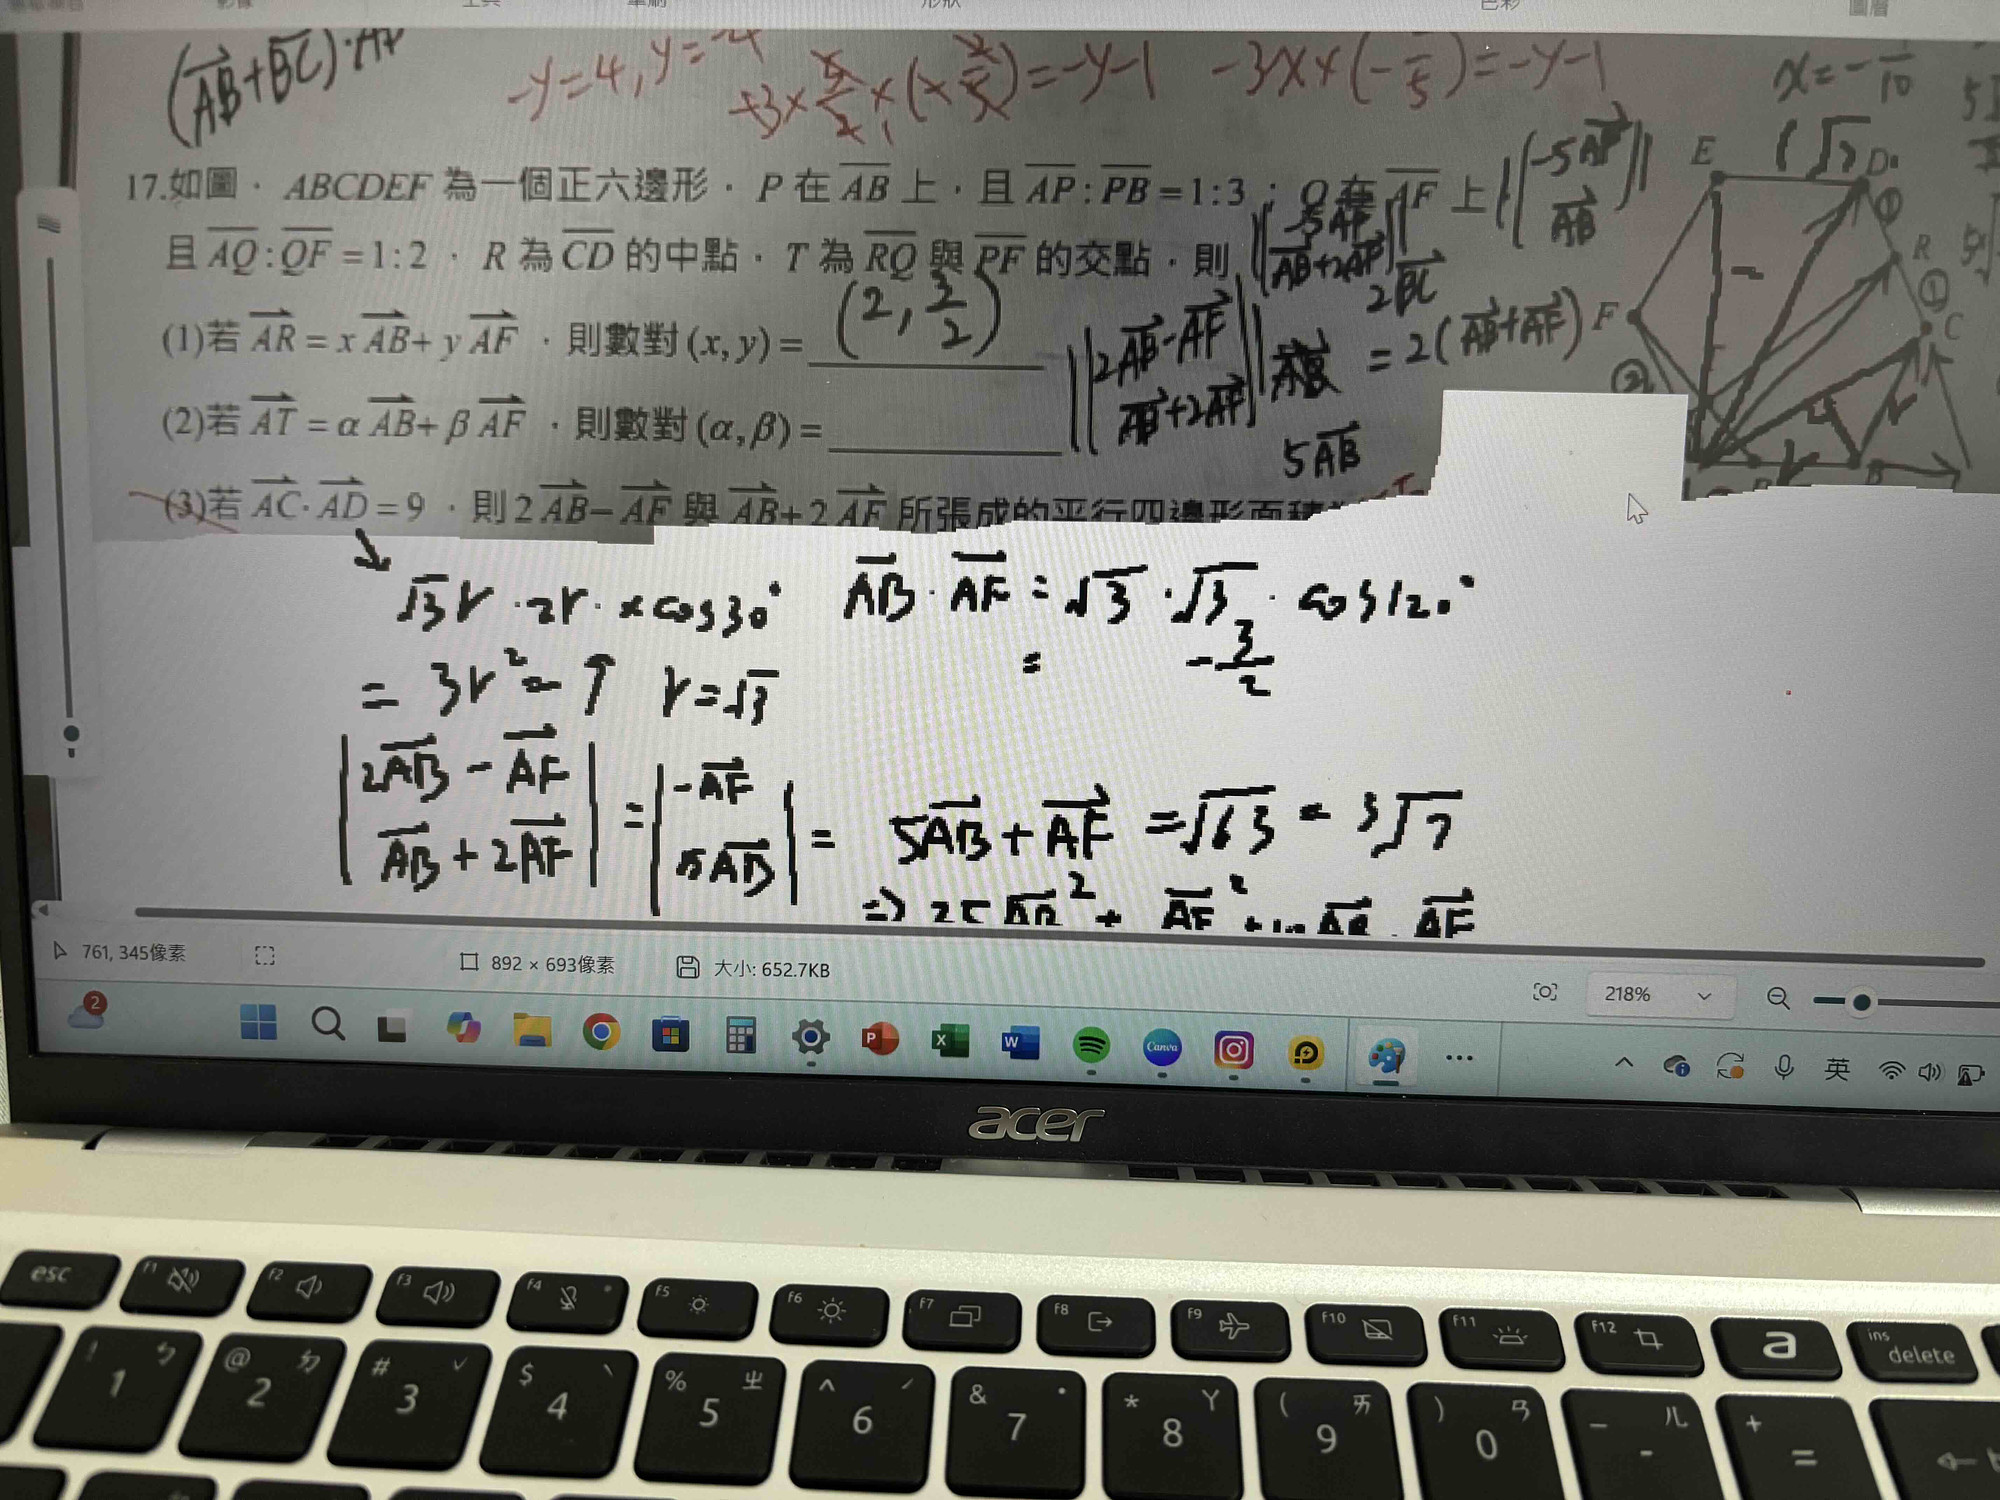 (AB+BC)·AF
-y=4, y=-4
-3x×(-1/5)=-y-1
x=-1/10
17.如圖,ABCDEF 為一個正六邊形,P 在 AB 上,且 AP:PB=1:3;Q 在 AF 上,
且 AQ:QF=1:2,R 為 CD 的中點,T 為 RQ 與 PF 的交點,則
(1)若 AR = x AB + y AF,則數對 (x, y) = (2, 3/2)
(2)若 AT = α AB + β AF,則數對 (α, β) =
(3)若 AC·AD = 9,則 2AB - AF 與 AB + 2AF 所張成的平行四邊形面積
-5AF
AB
-5AF
AB+2AF
2BC
= 2(AB+AF)
2AB-AF
AB+2AF
5AB
E
D
R
C
F
①
①
②
√3r·2r·×cos30°
= 3r² = 9 r=√3
AB·AF = √3·√3·cos120°
= -3/2
|2AB - AF
AB + 2AF| = |-AF
5AB| = 5AB + AF = √63 = 3√7
⇒ 25AB² + AF² + 10AB·AF
761, 345像素
892 × 693像素
大小: 652.7KB
218%
2
P
X
W
Canva
英
acer
esc
F1
F2
F3
F4
F5
F6
F7
F8
F9
F10
F11
F12
a
ins
delete
! ㄅ 1
@ ㄉ 2
# ˇ 3
$ ˋ 4
% ㄓ 5
^ ˊ 6
& ˙ 7
* ㄚ 8
( ㄞ 9
) ㄢ 0
_ ㄦ -
+ =